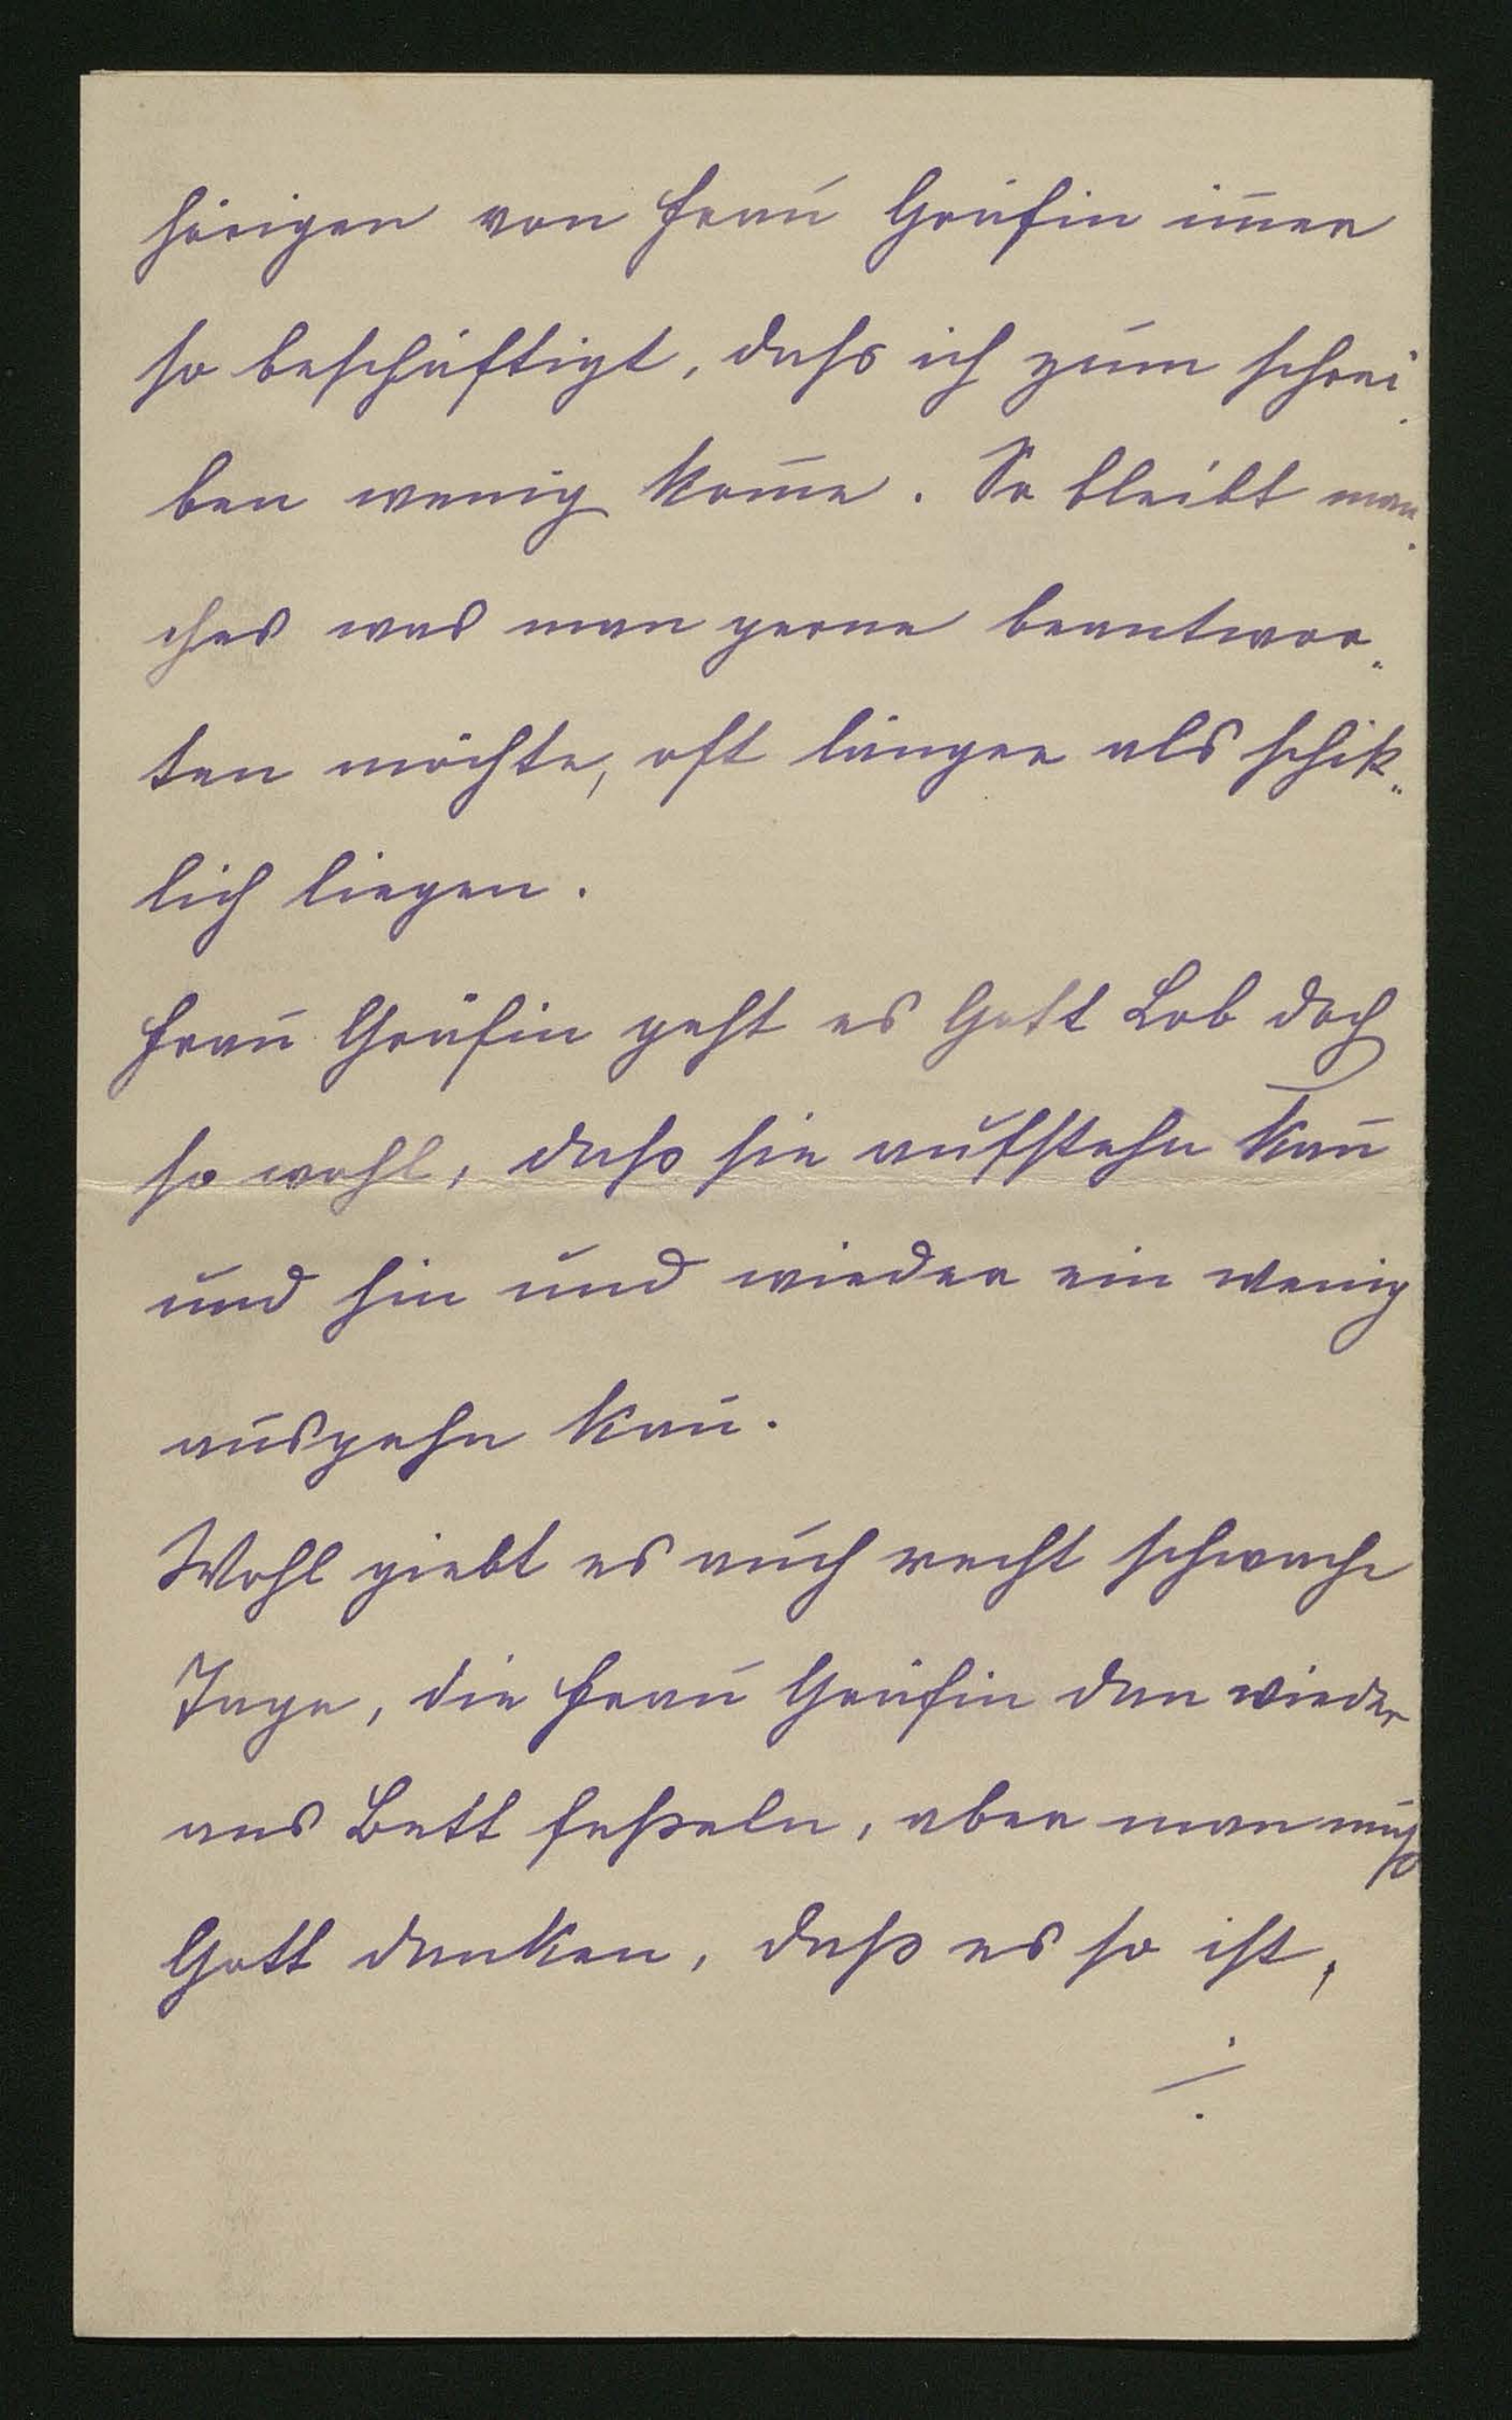 hörigen von Frau Gräfin im̅er
so beschäftigt, dass ich zum schrei
ben wenig kom̅e. So bleibt man-
ches was man gerne beantwor„
ten möchte, oft länger als schik„
lich liegen.
Frau Gräfin geht es Gott Lob doch
so wohl, dass sie aufstehn kan̅
und hin und wieder ein wenig
ausgehn kan̅.
Wohl giebt es auch recht schwache
Tage, die Frau Gräfin dan wieder
ans Bett feßeln, aber man muß
Gott danken, daß es so ist,
./.